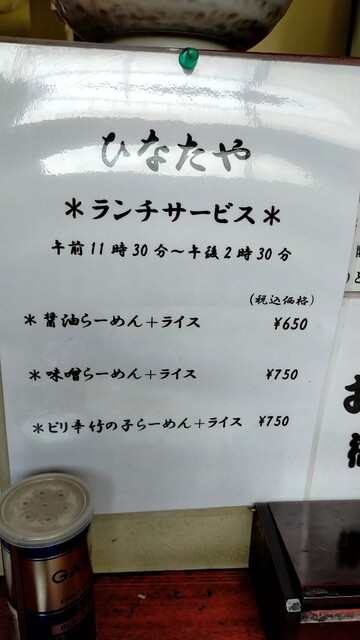 ひなたや
＊ランチサービス＊
午前11時30分～午後2時30分
(税込価格)
＊醤油らーめん＋ライス ¥650
＊味噌らーめん＋ライス ¥750
＊ピリ辛竹の子らーめん＋ライス ¥750
GA